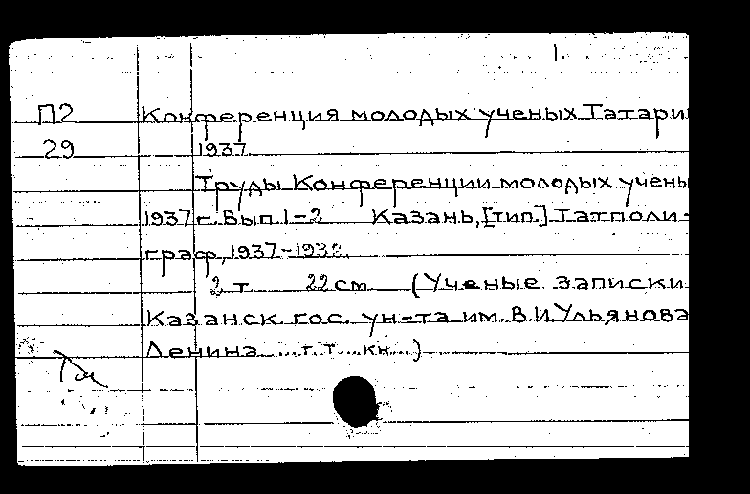 1.
П2 Конференция молодых ученых Татари
29 1937.
Труды Конференции молодых учены
1937 г. Вып. 1-2 Казань, [тип.] Татполи-
граф, 1937-1938.
2 т. 22 см. (Ученые записки
Казанск. гос. ун-та им. В.И. Ульянова
Ленина ... г. т. ... кн...)